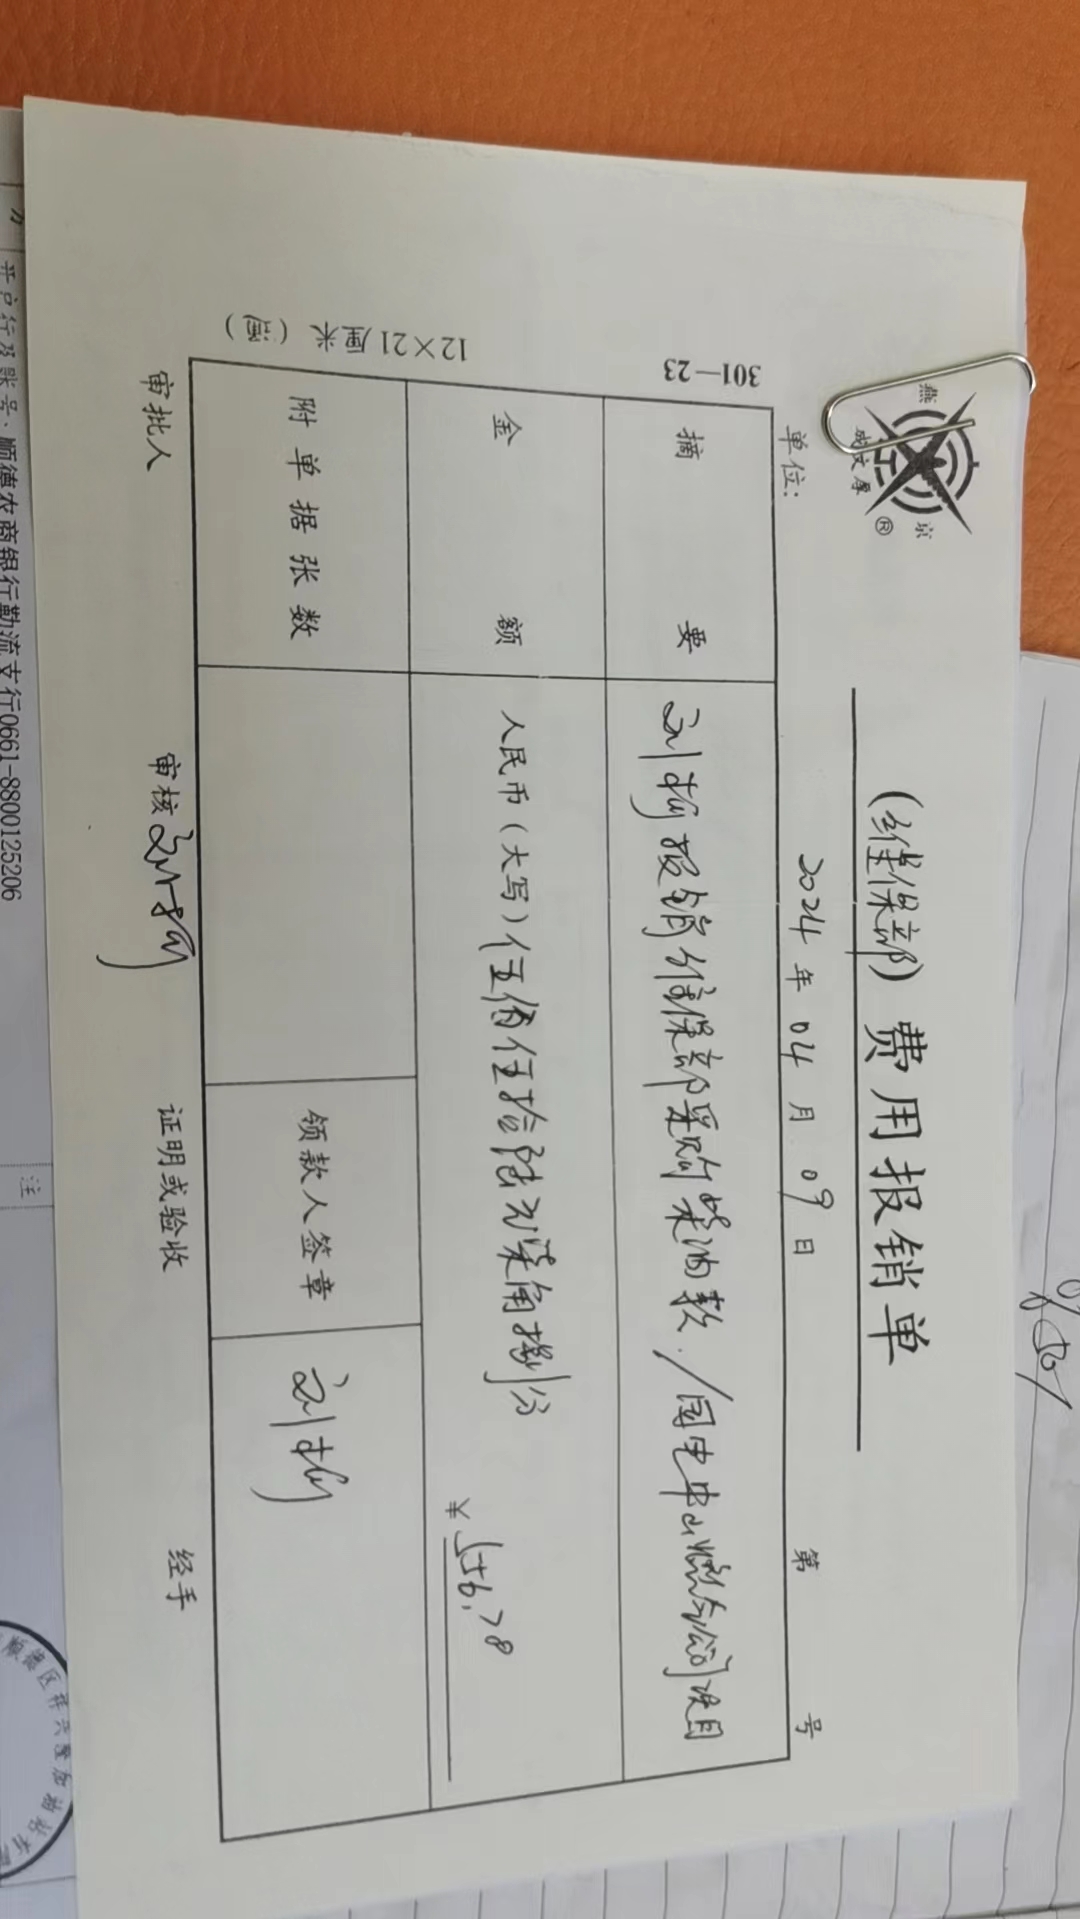 燕京
成文厚
®
(维保部) 费用报销单
2024年04月09日
单位:
第 号
301—23
摘要
刘 报销维保部采购柴油款./国电中山燃气公司项目
金额
人民币(大写)伍佰伍拾陆元柒角捌分
¥ 556.78
附单据张数
领款人签章
刘
12×21厘米(通)
审批人
审核 刘
证明或验收
经手
开户行及账号: 顺德农商银行勒流支行0661-8800125206
注
顺德区